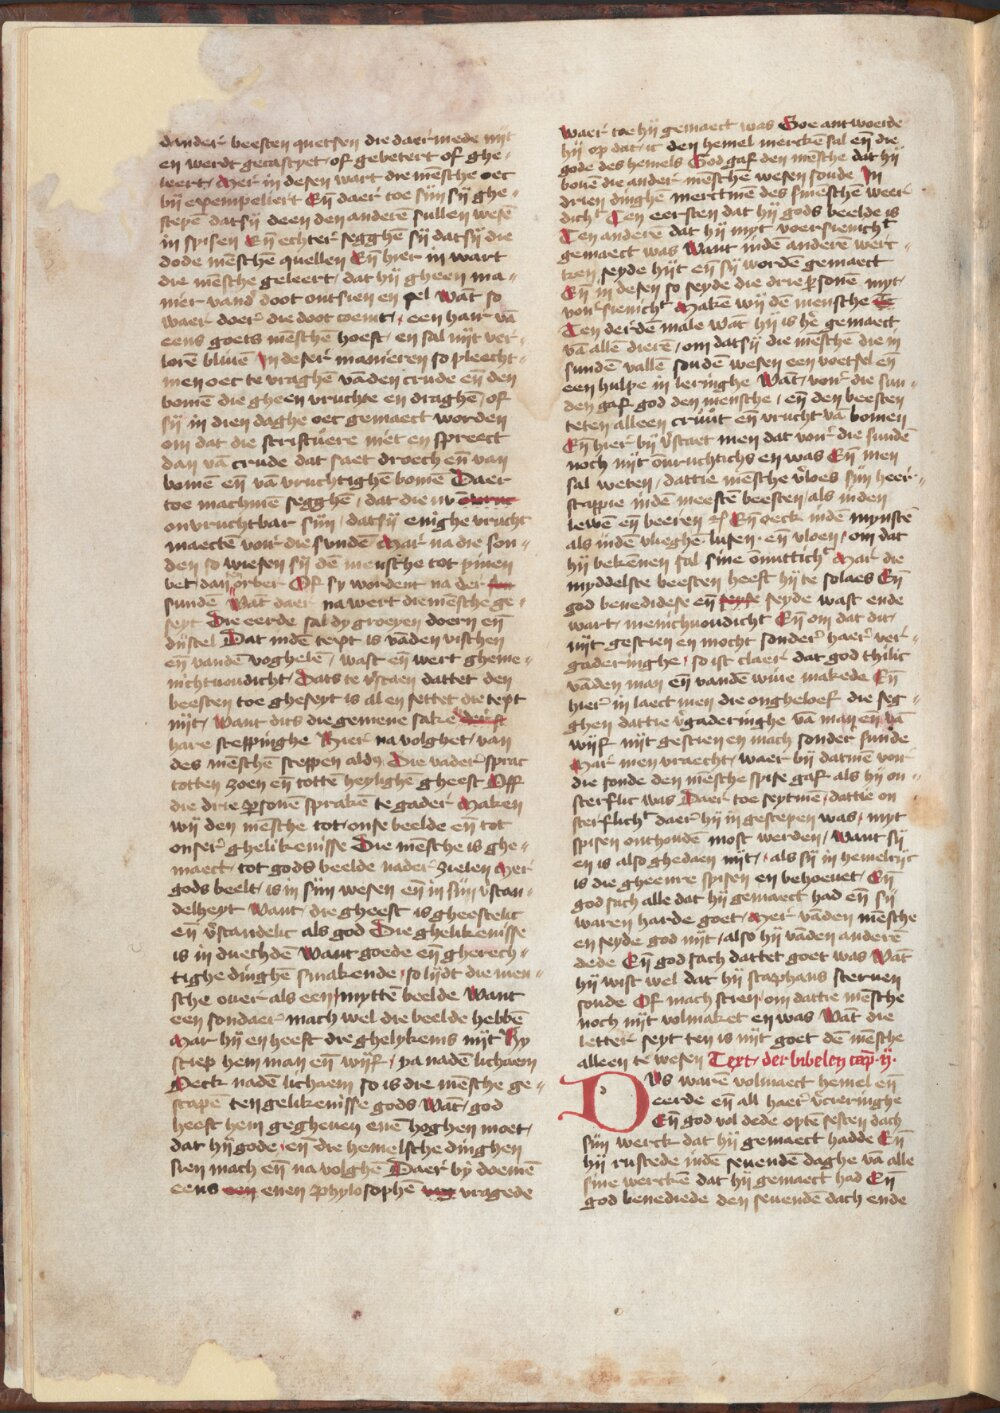 dander beesten quetsen die daer mede nyt
en werdt gecastyet of gebetert of ghe-
leert Mer in desen wart die mēsche oec
bij exempeleert Eñ daer toe sijn sij ghe-
scepē dat sij deen den anderē sullen wesē
in spisen Eñ echter segghē sij dat sij die
dode mēschē quellen Eñ hier in wart
die mēsche geleert dat hij gheen ma-
nier vand doot ontsien en sel Wāt so
waer doer die doot coemt een haer vā
eens goets mēschen hoeft en sal nyt ver-
loren bliuē In deser manieren so pleecht-
men oec te vraghē vāden crude eñ den
bomē die gheen vruchte en draghē of
sij in dien daghe oec gemaect worden
om dat die scriftuere niet en spreect
dan vā crude dat saet droech eñ van
bomē eñ vā vruchtighē bomē Daer
toe machmē segghē dat die nv
onvruchtbar sijn dat sij enighe vrucht
maectē voir die sundē Mar na die son-
den so wiesen sij dē mensche tot pinen
bet dan orber Of sy wordent na der
sundē Wāt daer na wert die mēsche ge-
seyt Die eerde sal dy groeyen doern eñ
distel Dat indē text is vāden visschen
eñ vandē voghelē wast eñ wert gheme-
nichuoudicht Dats te vstaen dattet den
beesten toe gheseyt is al en settet die text
nijt want dits die gemene sake
hare sceppinghe Hier na volghet van
des mēschē sceppen aldꝰ Die vader sprac
totten zoen eñ tottē heylighē gheest Off
die drie psonē sprakē te gader Maken
wij den mēsche tot onse beelde eñ tot
onser ghelikenisse Die mēsche is ghe-
maect tot gods beelde nader zielen Mer
gods beelt is in sijn wesen eñ in sijn vstan-
delheyt Want die gheest is gheestelic
eñ vstandelic als god Die ghelikenisse
is in duechdē Want goede eñ gherech-
tighe dinghē smakende so lijdt die men-
sche ouer als een myttē beelde Want
een sondaer mach wel die beelde hebbē
Mar hij en heeft die ghelykenis nijt Hy
sciep hem man eñ wijf ya nadē lichaem
Oeck nadē lichaem so is die mēsche ge-
scapē ten gelikenisse gods Wāt god
heeft hem gegheuen enē hoghen moet
dat hij gode eñ die hemelsche dinghen
sien mach eñ na volghē Daer by doemē
eens enen phylosophē vragede
waer toe hij gemaect was Soe antwoerde
hij op dat ic den hemel merckē sal eñ die
gode des hemels God gaf den mēsche dat hij
bouē die ander mēschē wesen soude In
drien dinghē merctmē des mēschē weer
dicht Ten eersten dat hij gods beelde is
Ten anderē dat hij myt voersienicht
gemaect was Want indē anderē wer-
ken seyde hijt eñ sy wordē gemaect
Eñ in desen so seyde die drie psonē myt
voirsienicht Makē wij dē mensche
Ten derdē male Wāt hij is hē gemaect
vā allē dierē om dat sij die mēsche die in
sundē vallē soudē wesen een voetsel eñ
een hulpe in leringhe Wāt voir die sun-
den gaf god den mensche eñ den beesten
teten alleen cruut eñ vrucht vā bomen
Eñ hier bij vstaet men dat voir die sundē
noch nijt onuruchtichs en was Eñ men
sal weten dattie mēsche vloes sijn heer-
scappie indē meestē beesten als inden
lewē eñ beeren Eñ oeck indē mynstē
als indē vlieghē lusen eñ vloen om dat
hij bekēnen sal sine onnuttichᵗ Mar die
myddelste beesten heeft hij te solaes Eñ
god benedidese eñ seyde wast ende
wart menichuoudicht Eñ om dat dit
nijt gescien en mocht sonder haer ver-
gaderinghe so ist claer dat god thilic
vāden man eñ vandē wiue makede Eñ
hier in laect men die ongheloef die seg-
ghen dattie vgaderinghe vā man eñ vā
wijf nijt gescien en mach sonder sunde
Mar men vraecht waer bij datmē voir
die sonde den mēsche spise gaf als hij on-
sterflic was Daer toe seytmē dattie on
sterflicht daer hij in gescepen was myt
spisen onthoudē most werden Want sij
en is also ghedaen nijt als sij in hemelrijc
is die gheenre spisen en behoeuet Eñ
god sach alle dat hij gemaect had eñ sij
waren harde goet Mer vāden mēsche
en seyde god nijt also hij vāden anderē
dede Eñ god sach dattet goet was Wāt
hij wist wel dat hij scaphans steruen
soude Of mach scien om dattie mēsche
noch nijt volmaket en was Wāt die
letter seyt ten is nijt goet dē mēsche
alleen te wesen Text der bibelen cap. ij.
Dus warē volmaect hemel eñ
eerde eñ all haer vcieringhe
Eñ god vol dede optē sesten dach
sijn werck dat hij gemaect hadde Eñ
hij rustede indē seuendē daghe vā alle
sine werckē dat hij gemaect had Eñ
god benediede den seuendē dach ende